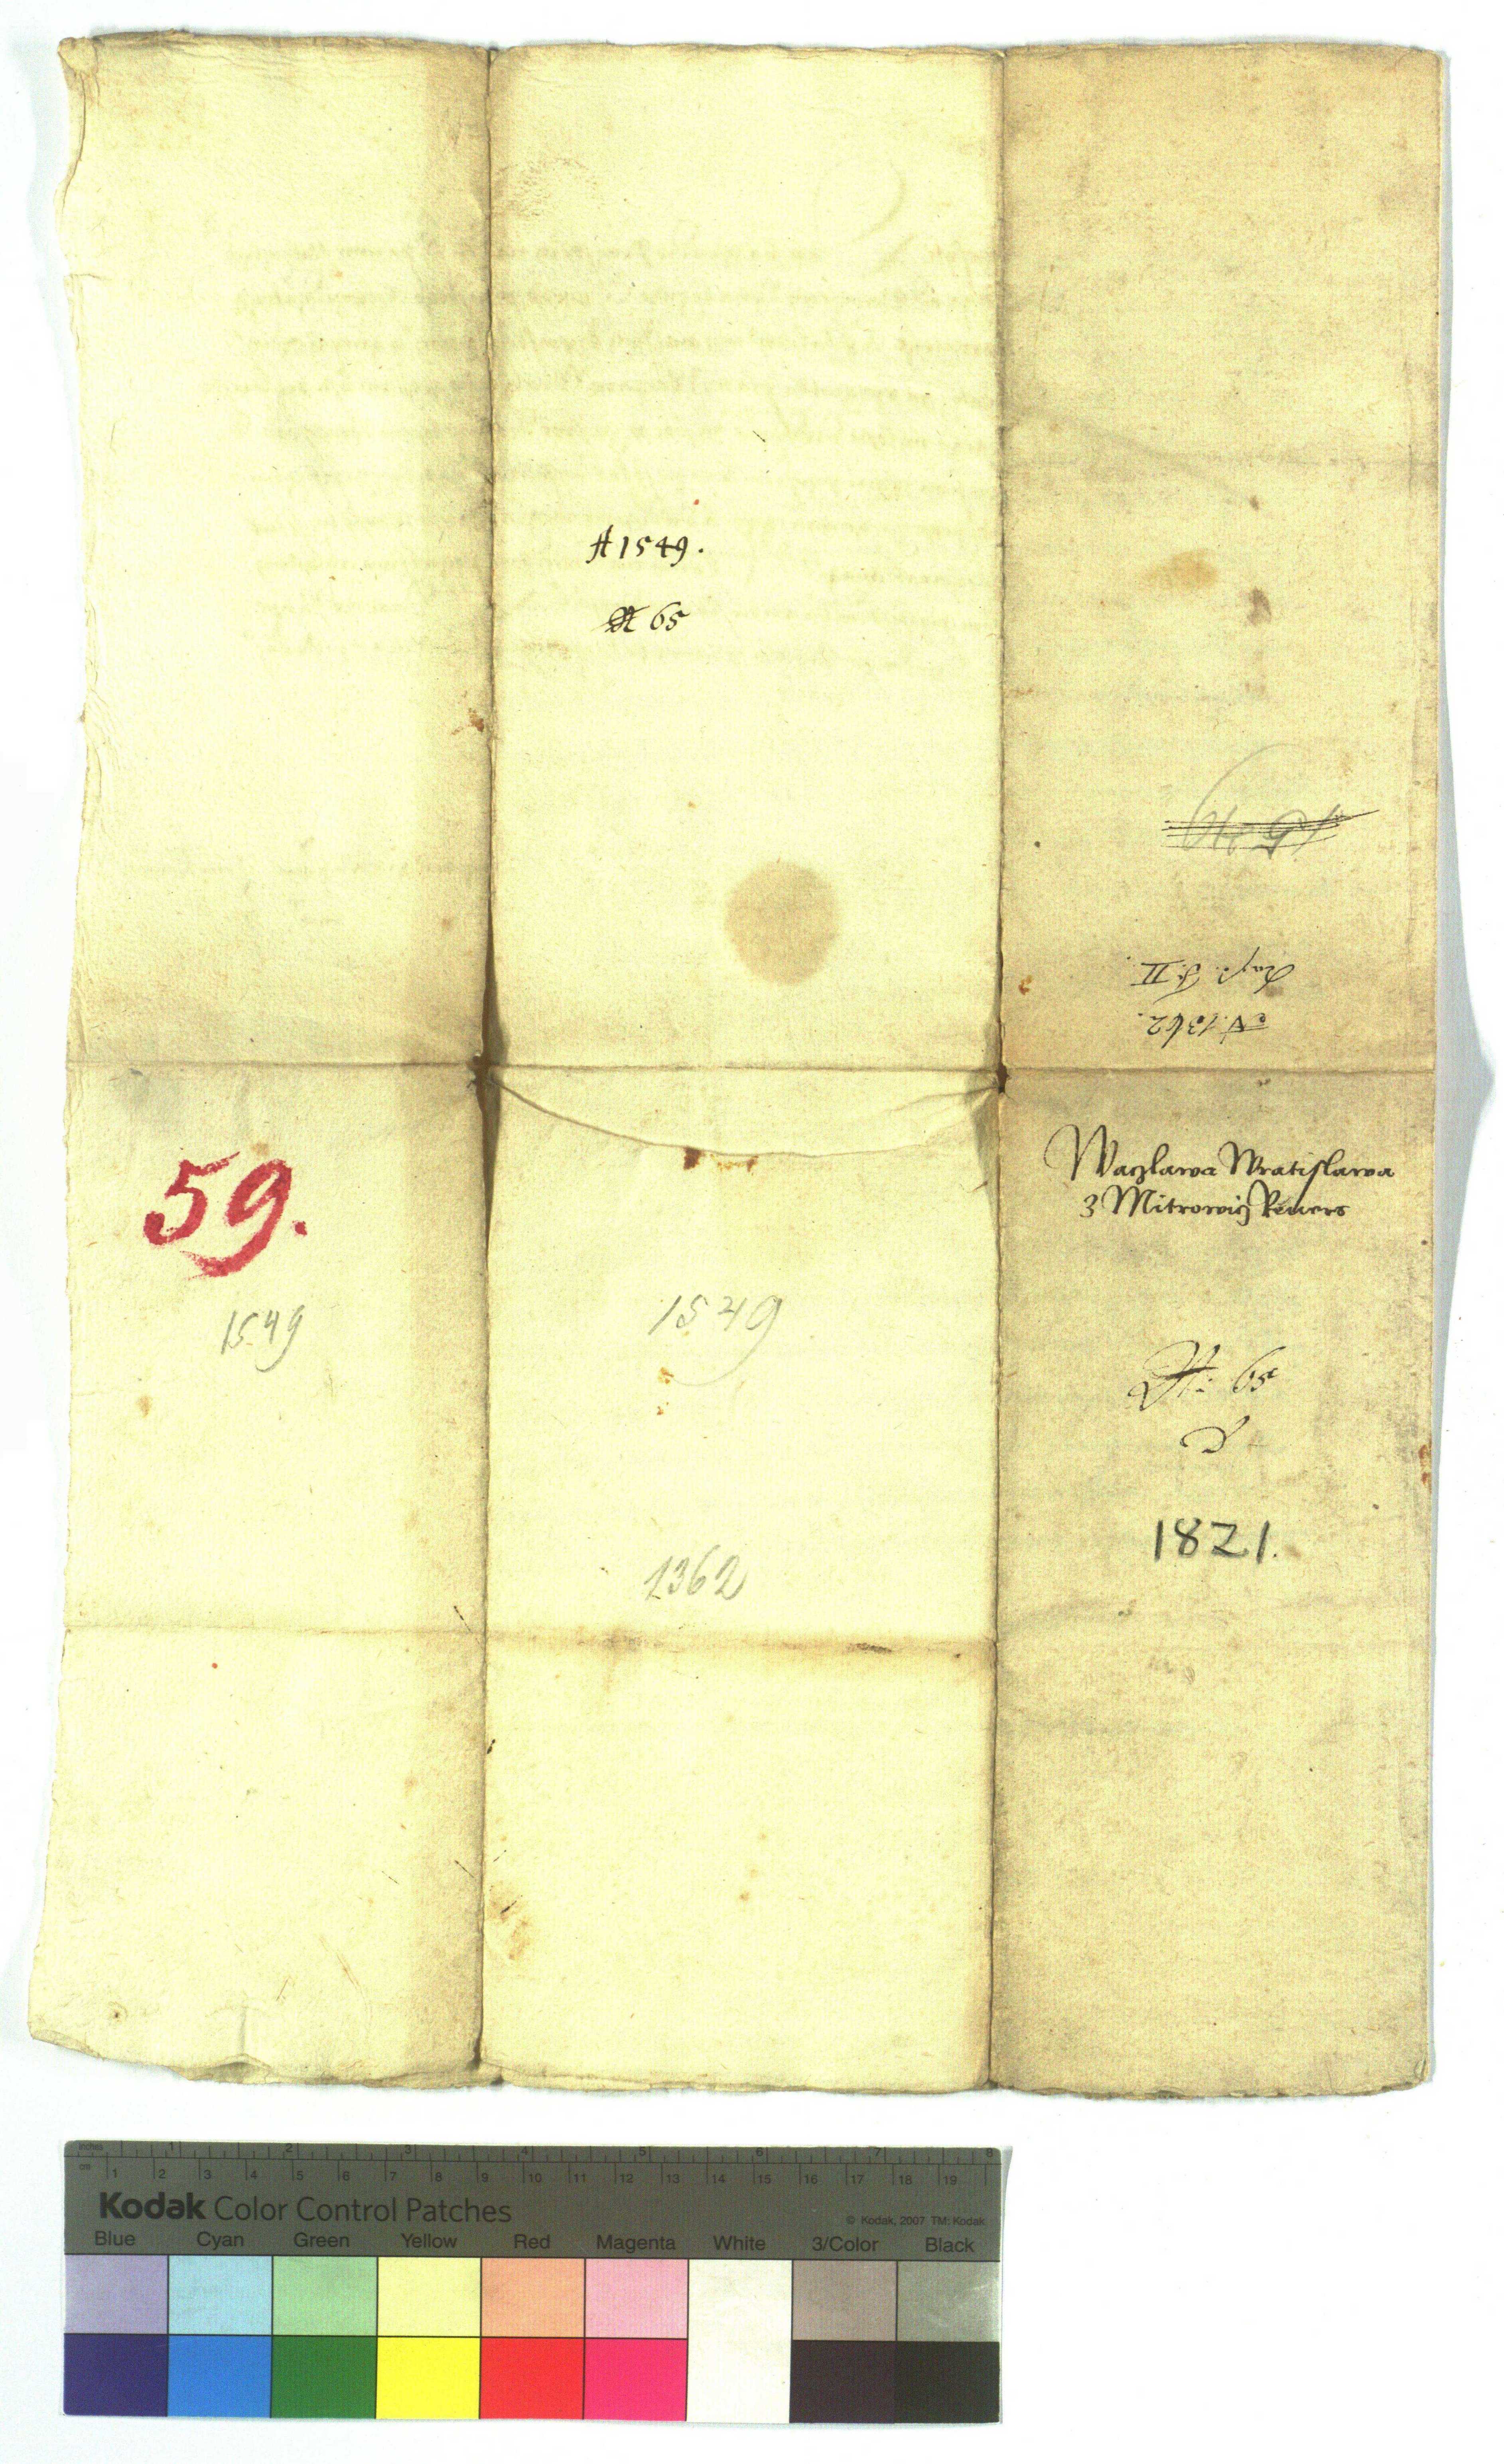 A 1549.
65
1549
Caps. T. II.
N. 1362.
59.
1549
1549
1362
Waczlawa Wratislawa
z Mitrowicz Revers
N: 65
1821.
inches 1 2 3 4 5 6 7 8
cm 1 2 3 4 5 6 7 8 9 10 11 12 13 14 15 16 17 18 19
Kodak Color Control Patches
© Kodak, 2007 TM: Kodak
Blue Cyan Green Yellow Red Magenta White 3/Color Black